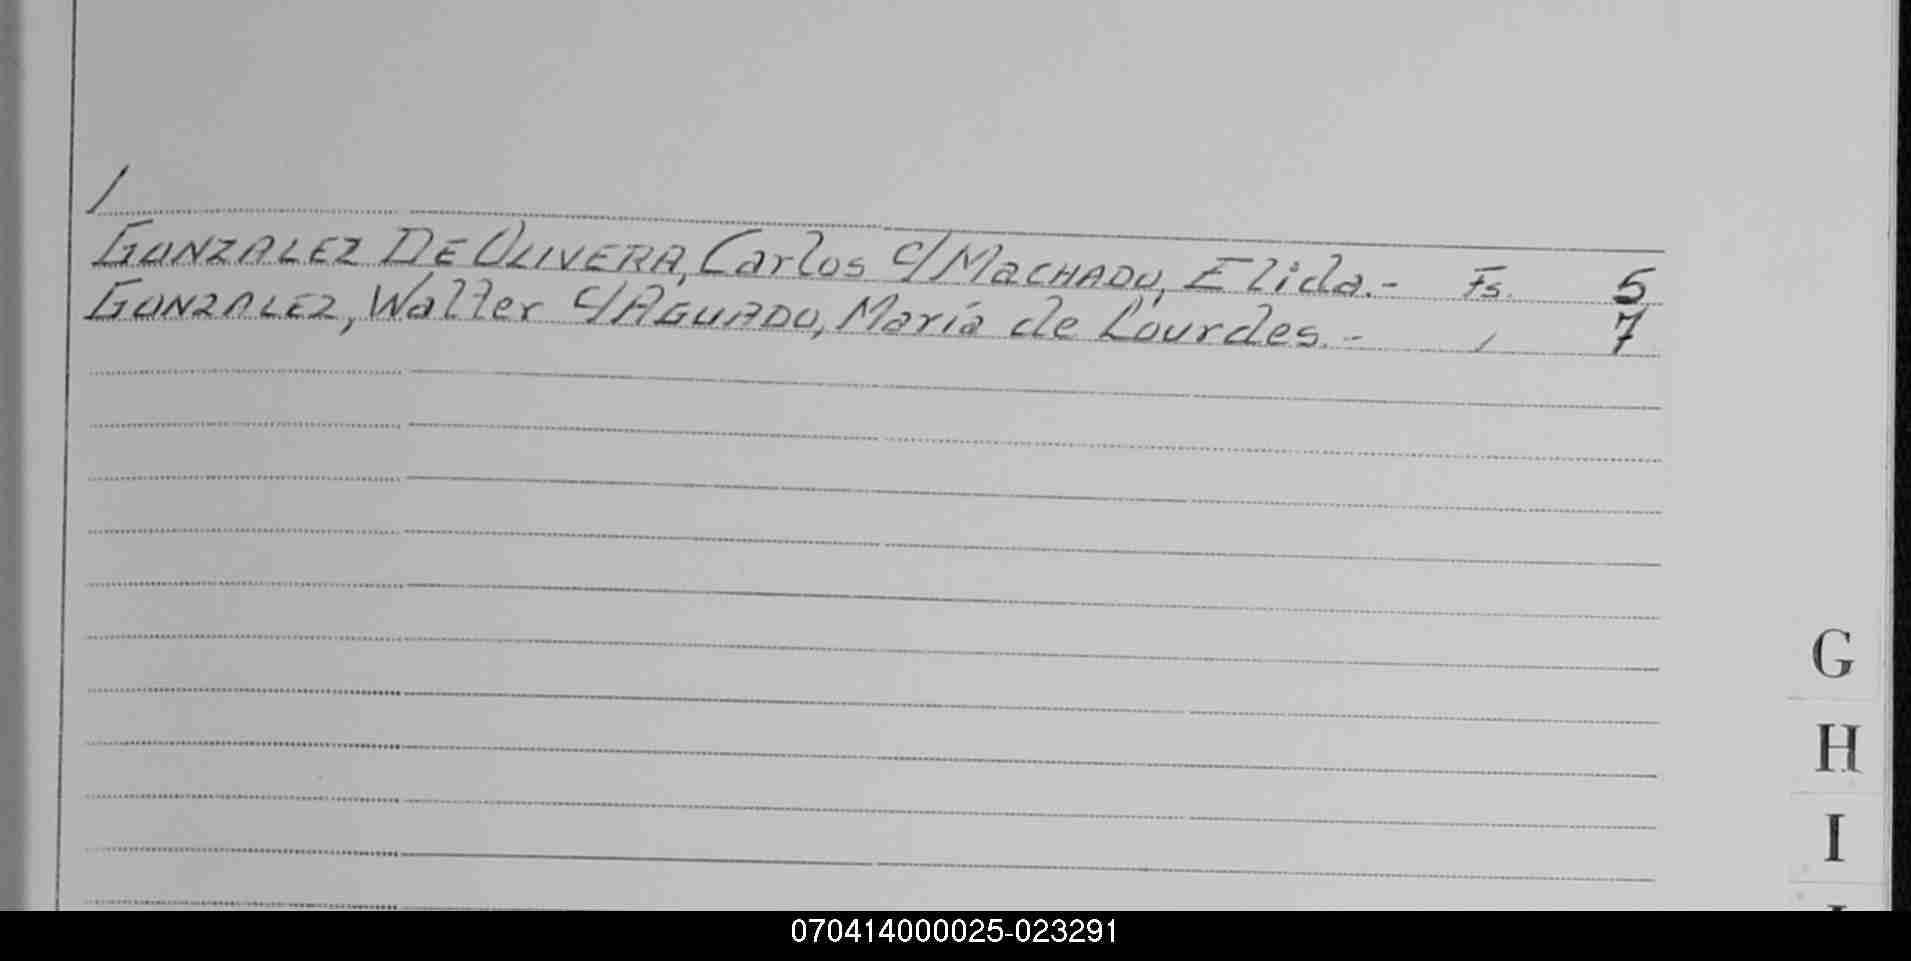 /
GONZALEZ DE OLIVERA, Carlos c/ MACHADO, Elida.- Fs. 5
GONZALEZ, Walter c/ AGUADO, María de Lourdes.- / 7
G
H
I
070414000025-023291